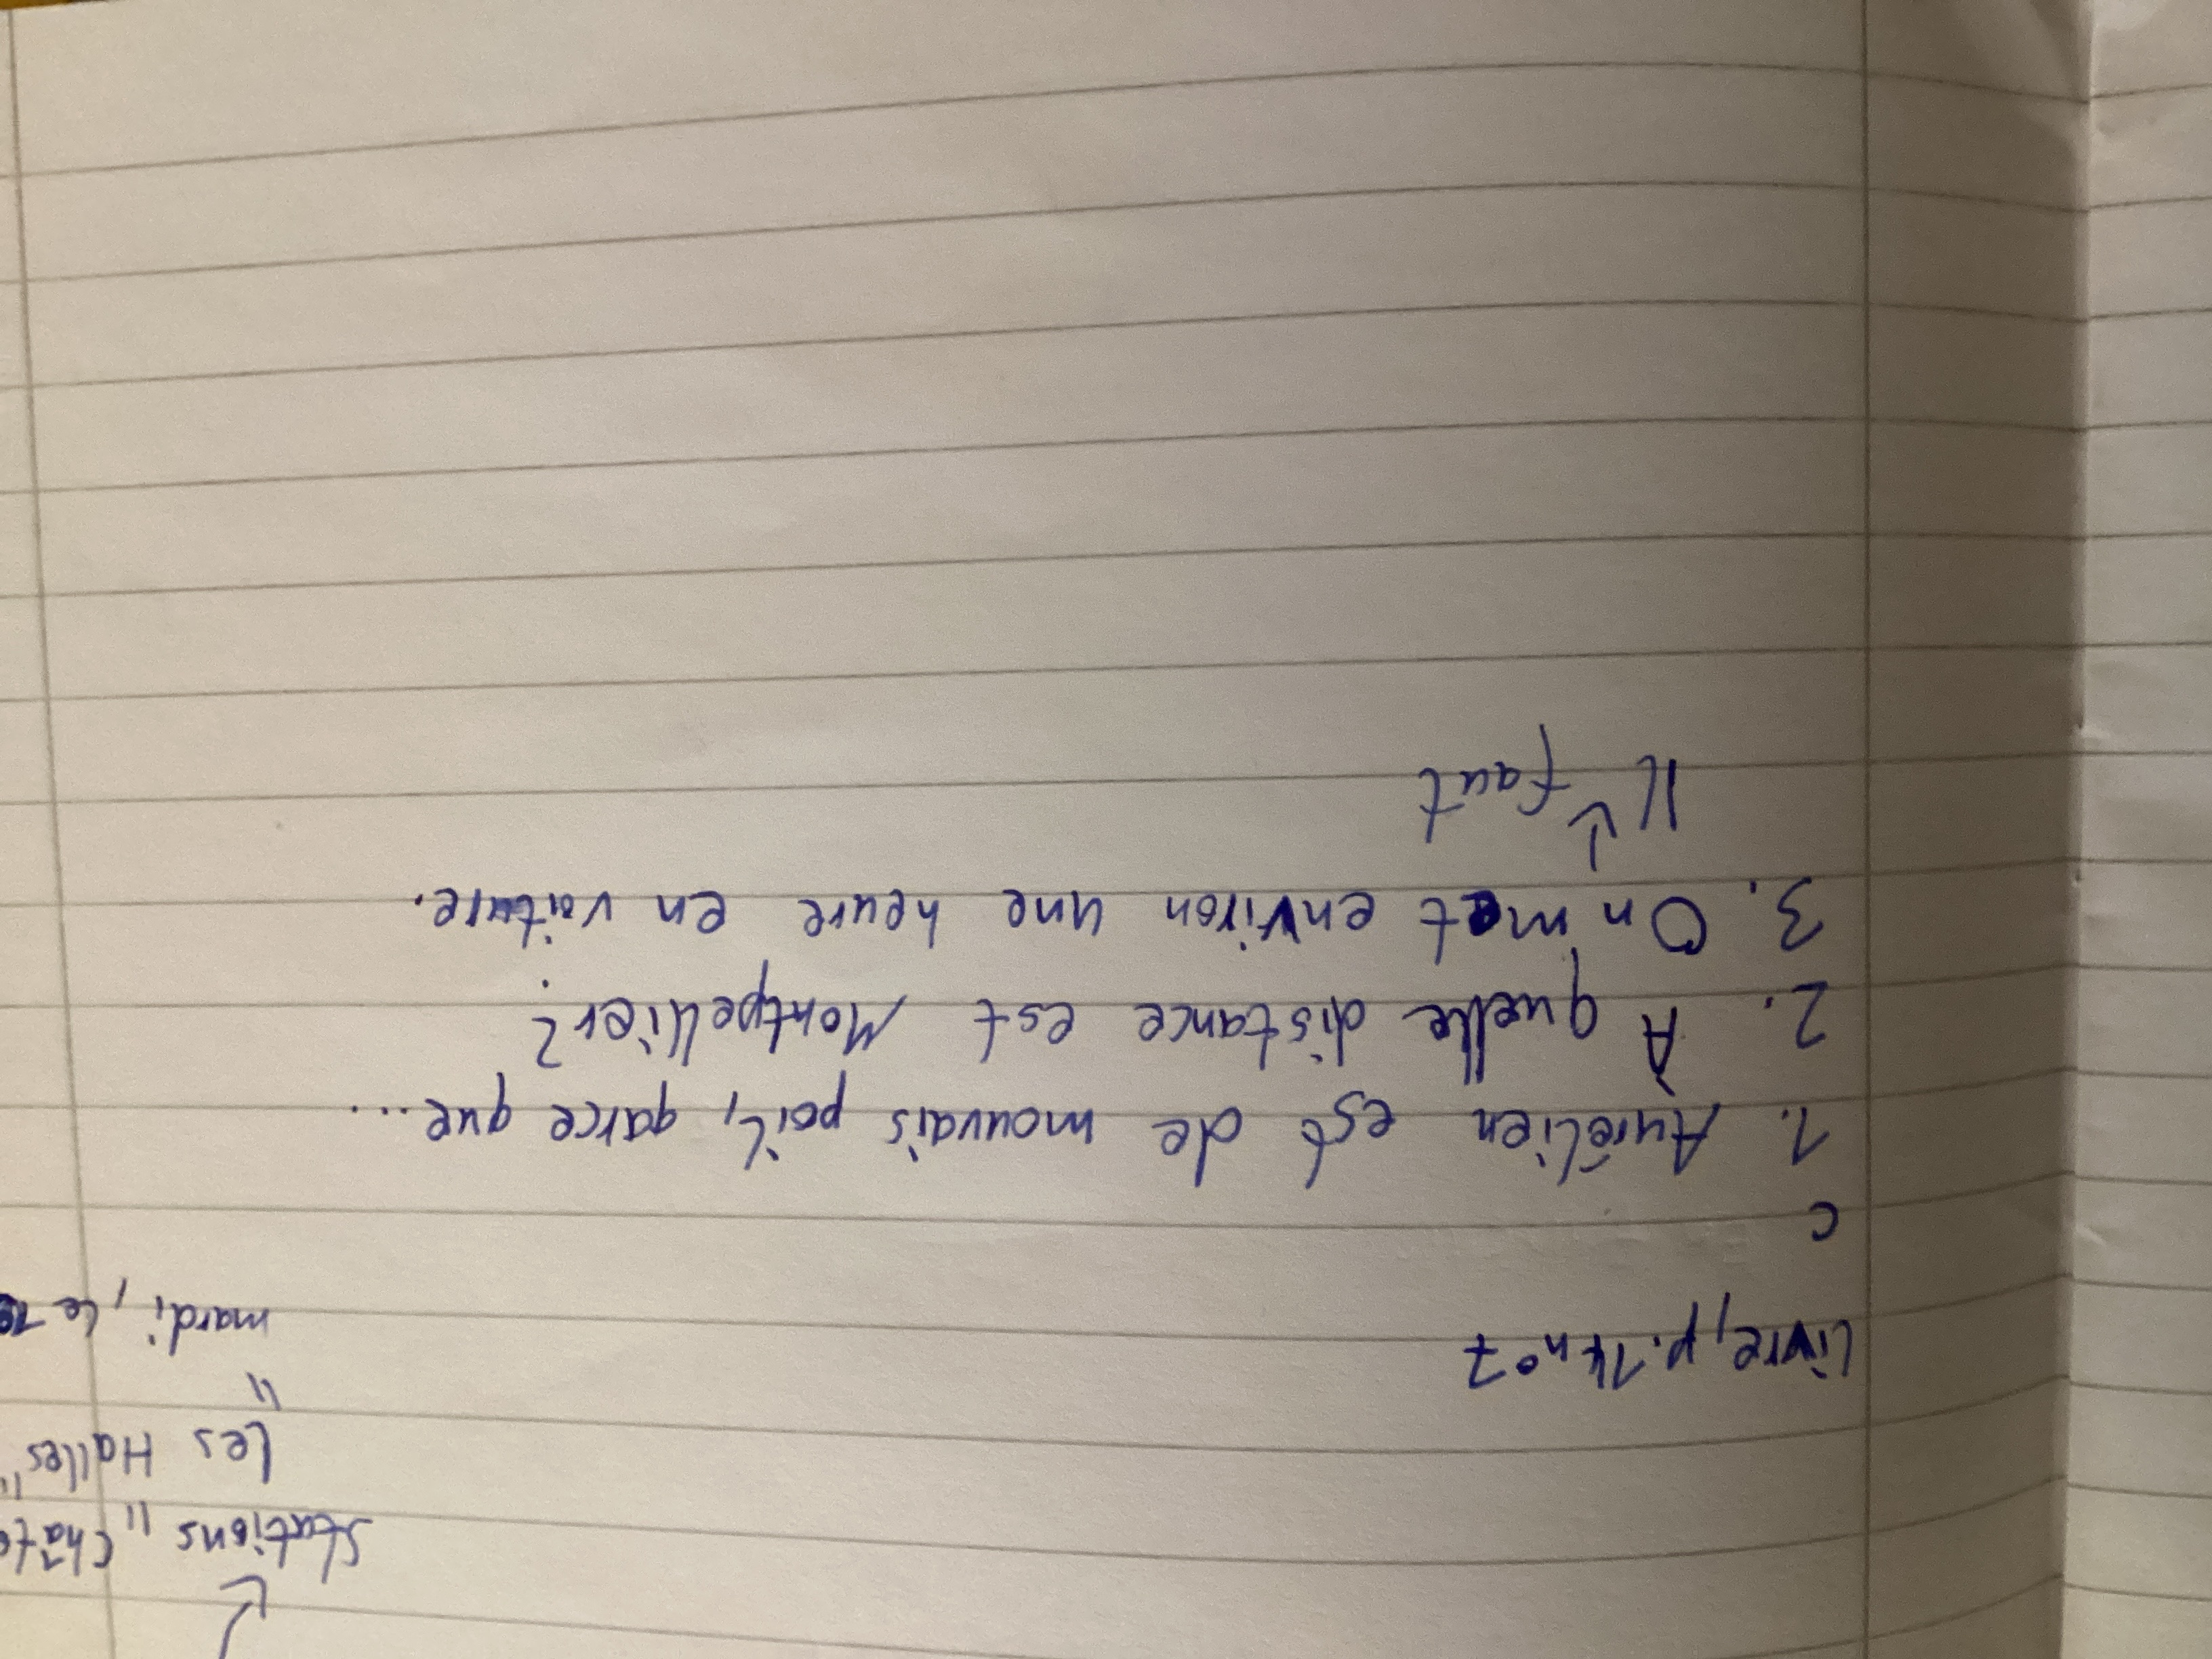 Stations "Chât
Les Halles"
"
mardi, le
Livre, p. 14 n° 7
c
1. Aurélien est de mauvais poil, parce que...
2. À quelle distance est Montpellier?
3. On met environ une heure en voiture.
Il faut